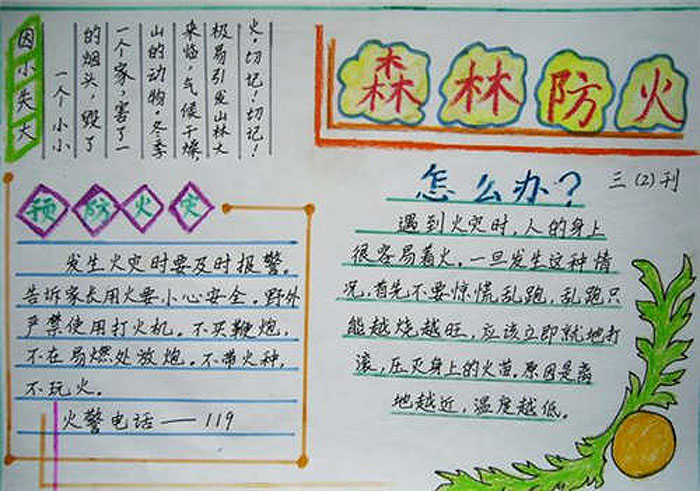 因小失大
一个小小
的烟头，毁了
一个家，害了一
山的动物。冬季
来临，气候干燥，
极易引发山林大
火，切记！切记！
森林防火
三（2）刊
预防火灾
发生火灾时要及时报警。
告诉家长用火要小心安全。野外
严禁使用打火机。不买鞭炮，
不在易燃处放炮。不带火种，
不玩火。
火警电话——119
怎么办？
遇到火灾时，人的身上
很容易着火。一旦发生这种情
况，首先不要惊慌乱跑，乱跑只
能越烧越旺，应该立即就地打
滚，压灭身上的火苗，原因是离
地越近，温度越低。